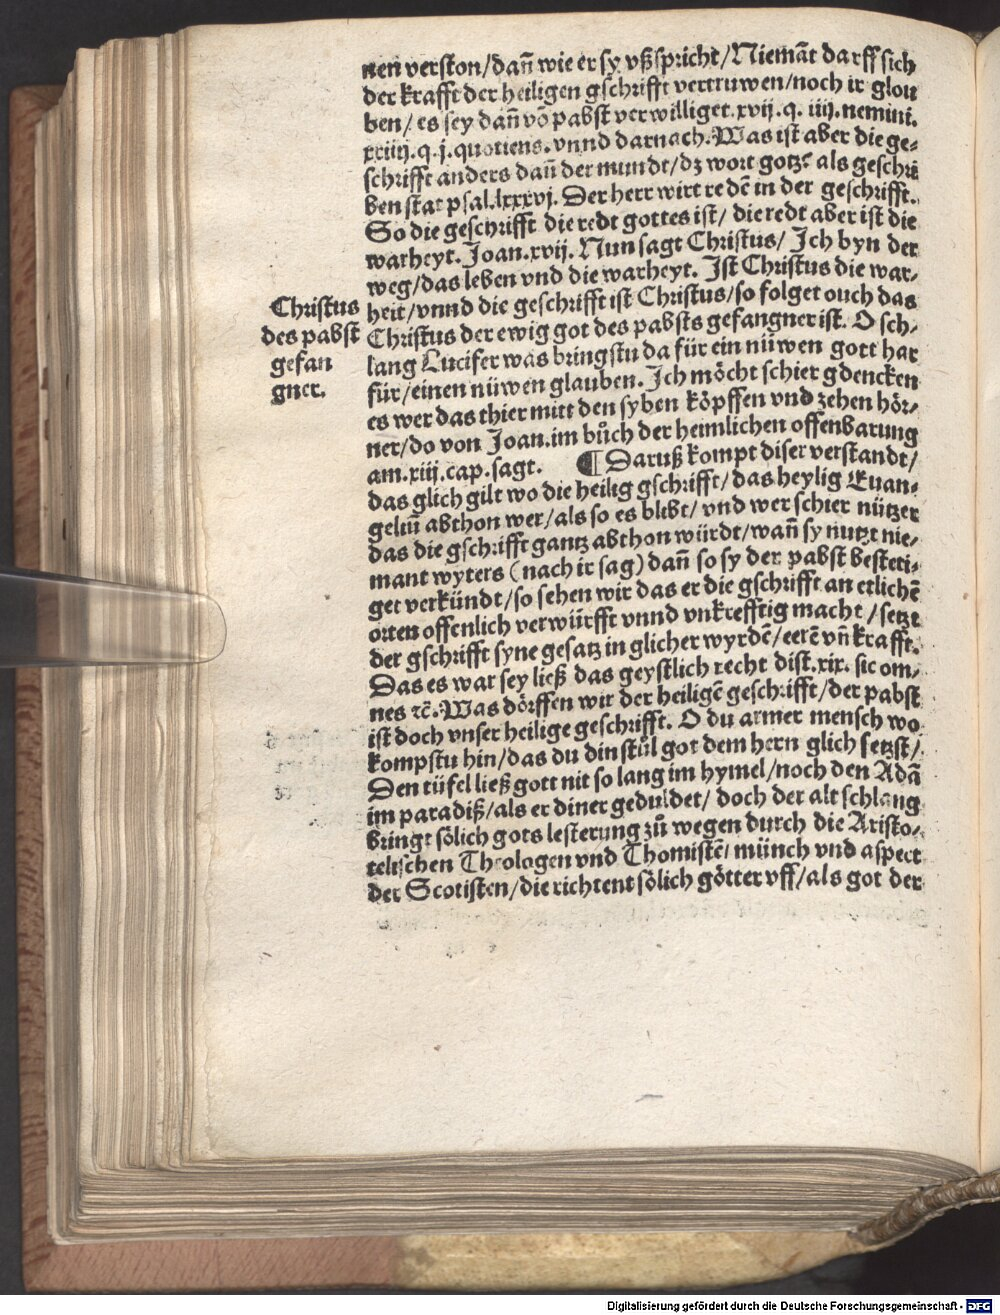 nen verston/dañ wie er sy vßspricht/Niemãt darff sich
der krafft der heiligen gschrifft vertruwen/noch ir glou
ben/ es sey dañ võ pabst verwilliget.xvij.q. iiij.nemini.
xxiiij.q.j.quotiens.vnnd darnach.Was ist aber die ge-
schrifft anders dañ der mundt/dz wort gotz als geschri
ben stat psal.lxxxvj. Der herr wirt redẽ in der geschrifft.
So die geschrifft die redt gottes ist/ die redt aber ist die
warheyt. Joan.xvij. Nun sagt Christus/ Ich byn der
weg/das leben vnd die warheyt. Ist Christus die war-
heit/vnnd die geschrifft ist Christus/so folget ouch das
Christus der ewig got des pabsts gefangner ist. O sch-
lang Lucifer was bringstu da für ein nüwen gott har
für/einen nüwen glauben. Ich möcht schier gdencken
es wer das thier mitt den syben köpffen vnd zehen hör-
ner/do von Joan.im bůch der heimlichen offenbarung
am.xiij.cap.sagt. ¶ Daruß kompt diser verstandt/
das glich gilt wo die heilig gschrifft/das heylig Euan-
geliũ abthon wer/als so es blibt/ vnd wer schier nützer
das die gschrifft gantz abthon würdt/wañ sy nutzt nie-
mant wyters (nach ir sag) dañ so sy der pabst besteti-
get verkündt/so sehen wir das er die gschrifft an etlichẽ
orten offenlich verwürfft vnnd vnkrefftig macht/setzt
der gschrifft syne gesatz in glicher wyrdẽ/eerẽ vñ krafft.
Das es war sey ließ das geystlich recht dist.xix. sic om-
nes ꝛc̃.Was dörffen wir der heiligẽ geschrifft/der pabst
ist doch vnser heilige geschrifft. O du armer mensch wo
kompstu hin/das du din stůl got dem hern glich setzst/
Den tüfel ließ gott nit so lang im hymel/noch den Adã
im paradiß/als er diner geduldet/ doch der alt schlang
bringt sölich gots lesterung zů wegen durch die Aristo-
telischen Theologen vnd Thomistẽ/ münch vnd aspect
der Scotisten/die richtent sölich götter vff/als got der
Christus
des pabst
gefan
gner.
Digitalisierung gefördert durch die Deutsche Forschungsgemeinschaft - DFG